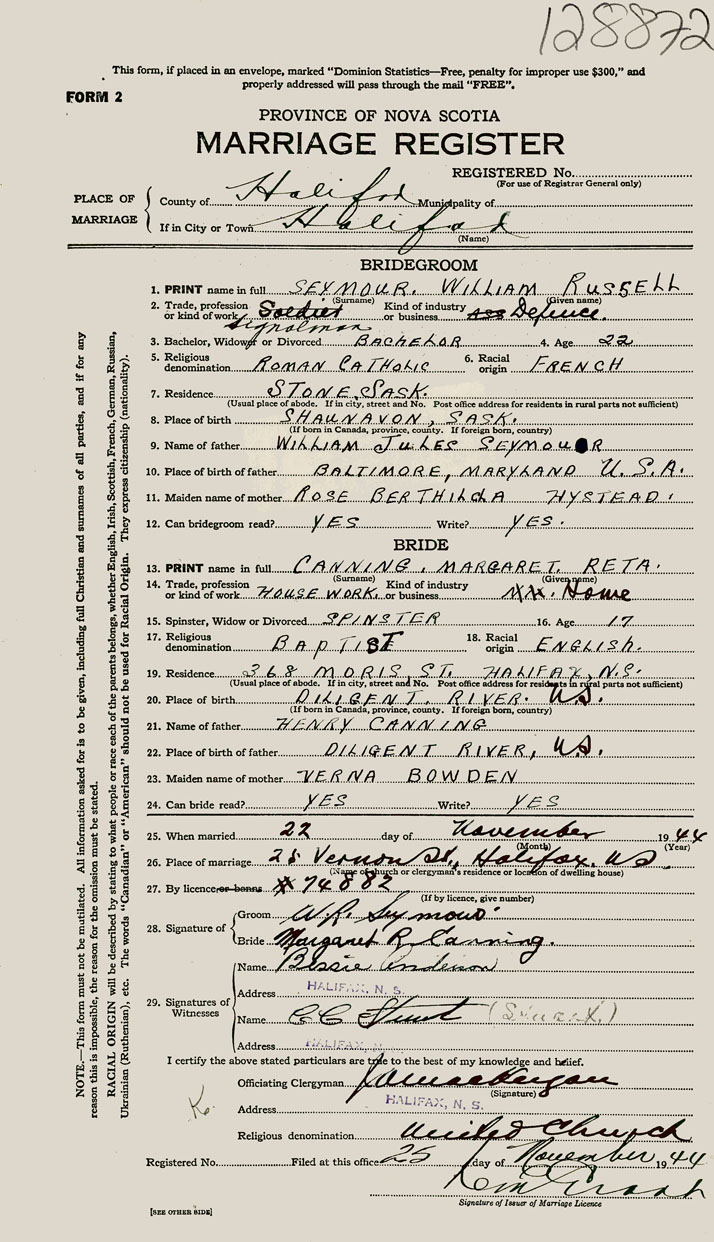 128872
This form, if placed in an envelope, marked "Dominion Statistics—Free, penalty for improper use $300," and
properly addressed will pass through the mail "FREE".
FORM 2
PROVINCE OF NOVA SCOTIA
MARRIAGE REGISTER
REGISTERED No.
(For use of Registrar General only)
PLACE OF MARRIAGE
County of Halifax Municipality of
If in City or Town Halifax
(Name)
BRIDEGROOM
1. PRINT name in full SEYMOUR. WILLIAM RUSSELL
(Surname) (Given name)
2. Trade, profession or kind of work Soldier Signalman Kind of industry or business Defence.
3. Bachelor, Widower or Divorced BACHELOR 4. Age 22
5. Religious denomination ROMAN CATHOLIC 6. Racial origin FRENCH
7. Residence STONE, SASK.
(Usual place of abode. If in city, street and No. Post office address for residents in rural parts not sufficient)
8. Place of birth SHAUNAVON, SASK.
(If born in Canada, province, county. If foreign born, country)
9. Name of father WILLIAM JULES SEYMOUR
10. Place of birth of father BALTIMORE, MARYLAND U.S.A.
11. Maiden name of mother ROSE BERTHILDA HYSTEAD.
12. Can bridegroom read? YES Write? YES.
BRIDE
13. PRINT name in full CANNING, MARGARET RETA.
(Surname) (Given name)
14. Trade, profession or kind of work HOUSE WORK. Kind of industry or business Home
15. Spinster, Widow or Divorced SPINSTER 16. Age 17
17. Religious denomination BAPTIST 18. Racial origin ENGLISH.
19. Residence 368 MORIS, ST. HALIFAX, N.S.
(Usual place of abode. If in city, street and No. Post office address for residents in rural parts not sufficient)
20. Place of birth DILIGENT RIVER. N.S.
(If born in Canada, province, county. If foreign born, country)
21. Name of father HENRY CANNING
22. Place of birth of father DILIGENT RIVER, N.S.
23. Maiden name of mother VERNA BOWDEN
24. Can bride read? YES Write? YES
25. When married 22 day of November 1944
(Month) (Year)
26. Place of marriage 28 Vernon St., Halifax. NS
(Name of church or clergyman's residence or location of dwelling house)
27. By licence or banns #74882
(If by licence, give number)
28. Signature of
Groom W.R. Seymour
Bride Margaret R. Canning.
29. Signatures of Witnesses
Name Bessie Anderson
Address HALIFAX, N. S.
Name C C Stuart
Address HALIFAX, N. S.
I certify the above stated particulars are true to the best of my knowledge and belief.
Officiating Clergyman
(Signature)
Address HALIFAX, N. S.
Religious denomination United Church
Registered No. Filed at this office 25 day of November 1944
Signature of Issuer of Marriage Licence
[SEE OTHER SIDE]
NOTE.—This form must not be mutilated. All information asked for is to be given, including full Christian and surnames of all parties, and if for any
reason this is impossible, the reason for the omission must be stated.
RACIAL ORIGIN will be described by stating to what people or race each of the parents belongs, whether English, Irish, Scottish, French, German, Russian,
Ukrainian (Ruthenian), etc. The words "Canadian" or "American" should not be used for Racial Origin. They express citizenship (nationality).